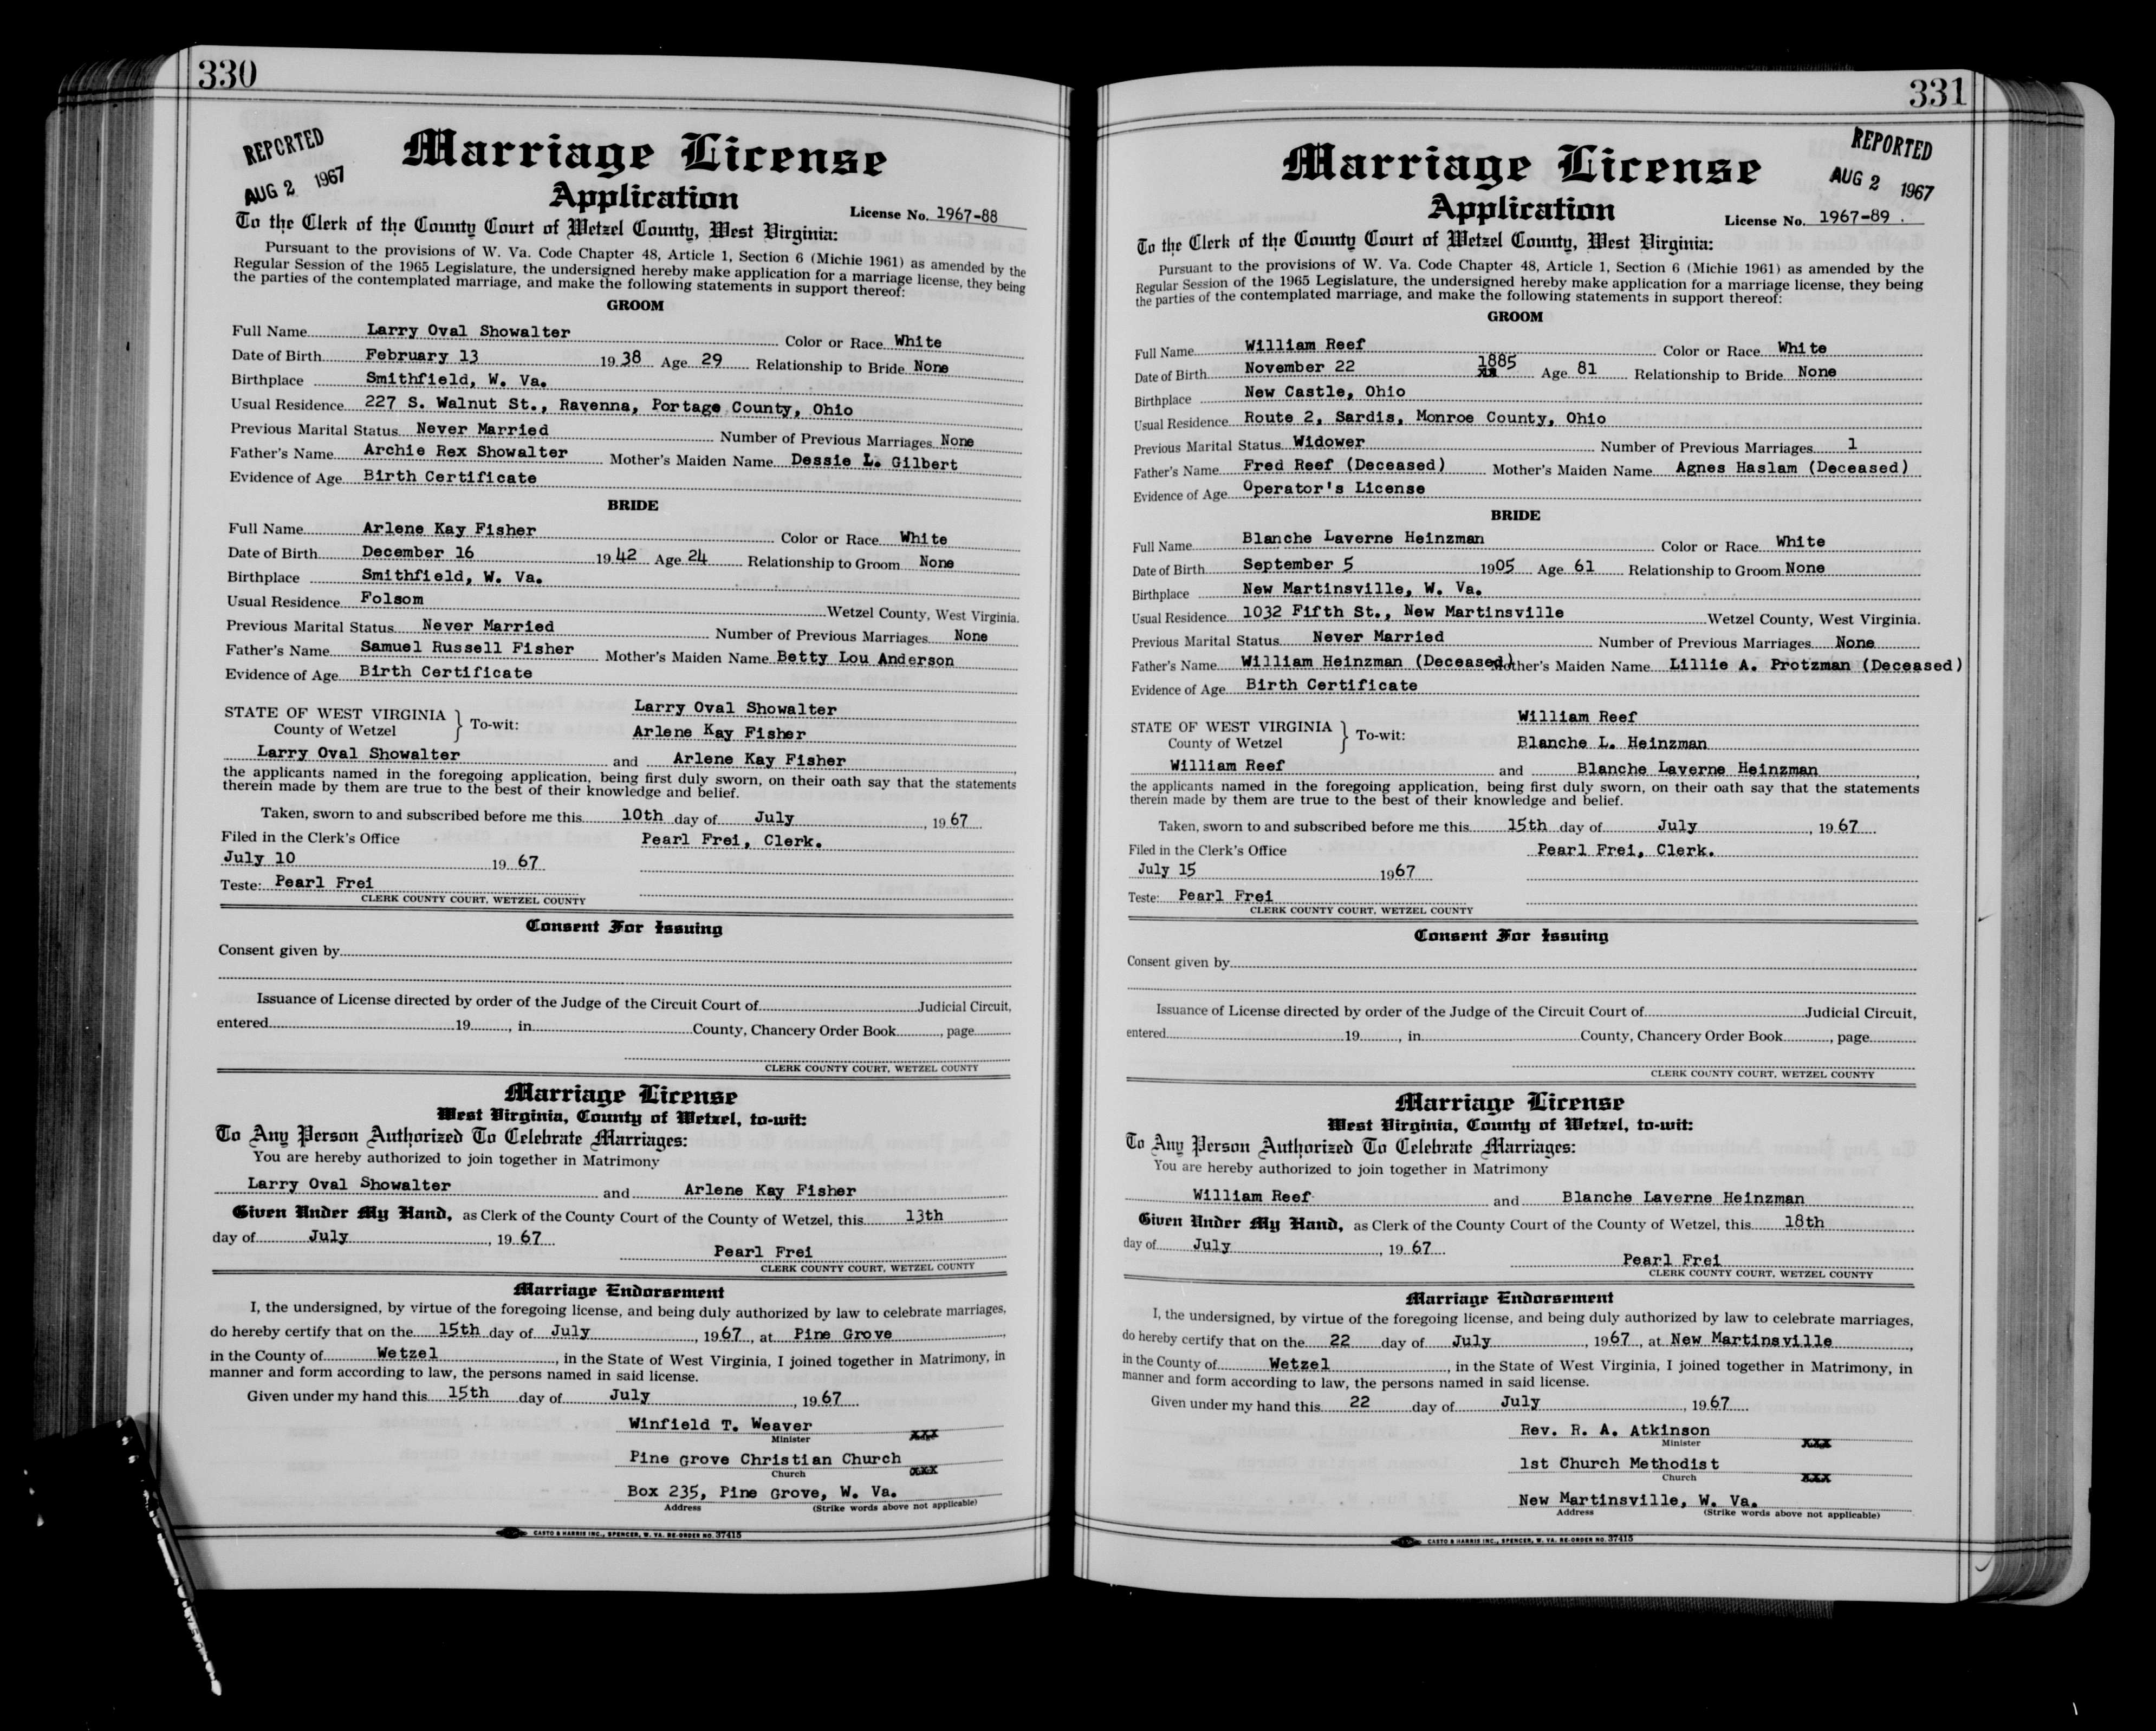 330
REPORTED
AUG 2 1967
Marriage License
Application
License No. 1967-88
To the Clerk of the County Court of Wetzel County, West Virginia:
Pursuant to the provisions of W. Va. Code Chapter 48, Article 1, Section 6 (Michie 1961) as amended by the
Regular Session of the 1965 Legislature, the undersigned hereby make application for a marriage license, they being
the parties of the contemplated marriage, and make the following statements in support thereof:
GROOM
Full Name Larry Oval Showalter Color or Race White
Date of Birth February 13 1938 Age 29 Relationship to Bride None
Birthplace Smithfield, W. Va.
Usual Residence 227 S. Walnut St., Ravenna, Portage County, Ohio
Previous Marital Status Never Married Number of Previous Marriages None
Father's Name Archie Rex Showalter Mother's Maiden Name Dessie L. Gilbert
Evidence of Age Birth Certificate
BRIDE
Full Name Arlene Kay Fisher Color or Race White
Date of Birth December 16 1942 Age 24 Relationship to Groom None
Birthplace Smithfield, W. Va.
Usual Residence Folsom Wetzel County, West Virginia.
Previous Marital Status Never Married Number of Previous Marriages None
Father's Name Samuel Russell Fisher Mother's Maiden Name Betty Lou Anderson
Evidence of Age Birth Certificate
Larry Oval Showalter
STATE OF WEST VIRGINIA
County of Wetzel } To-wit:
Arlene Kay Fisher
Larry Oval Showalter and Arlene Kay Fisher,
the applicants named in the foregoing application, being first duly sworn, on their oath say that the statements
therein made by them are true to the best of their knowledge and belief.
Taken, sworn to and subscribed before me this 10th day of July, 1967
Filed in the Clerk's Office Pearl Frei, Clerk.
July 10 1967
Teste: Pearl Frei
CLERK COUNTY COURT, WETZEL COUNTY
Consent For Issuing
Consent given by
Issuance of License directed by order of the Judge of the Circuit Court of Judicial Circuit,
entered 19, in County, Chancery Order Book, page
CLERK COUNTY COURT, WETZEL COUNTY
Marriage License
West Virginia, County of Wetzel, to-wit:
To Any Person Authorized To Celebrate Marriages:
You are hereby authorized to join together in Matrimony
Larry Oval Showalter and Arlene Kay Fisher
Given Under My Hand, as Clerk of the County Court of the County of Wetzel, this 13th
day of July, 1967
Pearl Frei
CLERK COUNTY COURT, WETZEL COUNTY
Marriage Endorsement
I, the undersigned, by virtue of the foregoing license, and being duly authorized by law to celebrate marriages,
do hereby certify that on the 15th day of July, 1967, at Pine Grove,
in the County of Wetzel, in the State of West Virginia, I joined together in Matrimony, in
manner and form according to law, the persons named in said license.
Given under my hand this 15th day of July, 1967
Winfield T. Weaver
Minister xxx
Pine grove Christian Church
Church xxx
Box 235, Pine Grove, W. Va.
Address (Strike words above not applicable)
CASTO & HARRIS INC., SPENCER, W. VA. RE-ORDER NO. 37415
331
REPORTED
AUG 2 1967
Marriage License
Application
License No. 1967-89.
To the Clerk of the County Court of Wetzel County, West Virginia:
Pursuant to the provisions of W. Va. Code Chapter 48, Article 1, Section 6 (Michie 1961) as amended by the
Regular Session of the 1965 Legislature, the undersigned hereby make application for a marriage license, they being
the parties of the contemplated marriage, and make the following statements in support thereof:
GROOM
Full Name William Reef Color or Race White
Date of Birth November 22 1885 Age 81 Relationship to Bride None
Birthplace New Castle, Ohio
Usual Residence Route 2, Sardis, Monroe County, Ohio
Previous Marital Status Widower Number of Previous Marriages 1
Father's Name Fred Reef (Deceased) Mother's Maiden Name Agnes Haslam (Deceased)
Evidence of Age Operator's License
BRIDE
Full Name Blanche Laverne Heinzman Color or Race White
Date of Birth September 5 1905 Age 61 Relationship to Groom None
Birthplace New Martinsville, W. Va.
Usual Residence 1032 Fifth St., New Martinsville Wetzel County, West Virginia.
Previous Marital Status Never Married Number of Previous Marriages None
Father's Name William Heinzman (Deceased) Mother's Maiden Name Lillie A. Protzman (Deceased)
Evidence of Age Birth Certificate
William Reef
STATE OF WEST VIRGINIA
County of Wetzel } To-wit:
Blanche L. Heinzman
William Reef and Blanche Laverne Heinzman,
the applicants named in the foregoing application, being first duly sworn, on their oath say that the statements
therein made by them are true to the best of their knowledge and belief.
Taken, sworn to and subscribed before me this 15th day of July, 1967
Filed in the Clerk's Office Pearl Frei, Clerk.
July 15 1967
Teste: Pearl Frei
CLERK COUNTY COURT, WETZEL COUNTY
Consent For Issuing
Consent given by
Issuance of License directed by order of the Judge of the Circuit Court of Judicial Circuit,
entered 19, in County, Chancery Order Book, page
CLERK COUNTY COURT, WETZEL COUNTY
Marriage License
West Virginia, County of Wetzel, to-wit:
To Any Person Authorized To Celebrate Marriages:
You are hereby authorized to join together in Matrimony
William Reef and Blanche Laverne Heinzman
Given Under My Hand, as Clerk of the County Court of the County of Wetzel, this 18th
day of July, 1967
Pearl Frei
CLERK COUNTY COURT, WETZEL COUNTY
Marriage Endorsement
I, the undersigned, by virtue of the foregoing license, and being duly authorized by law to celebrate marriages,
do hereby certify that on the 22 day of July, 1967, at New Martinsville,
in the County of Wetzel, in the State of West Virginia, I joined together in Matrimony, in
manner and form according to law, the persons named in said license.
Given under my hand this 22 day of July, 1967
Rev. R. A. Atkinson
Minister xxx
1st Church Methodist
Church xxx
New Martinsville, W. Va.
Address (Strike words above not applicable)
CASTO & HARRIS INC., SPENCER, W. VA. RE-ORDER NO. 37415